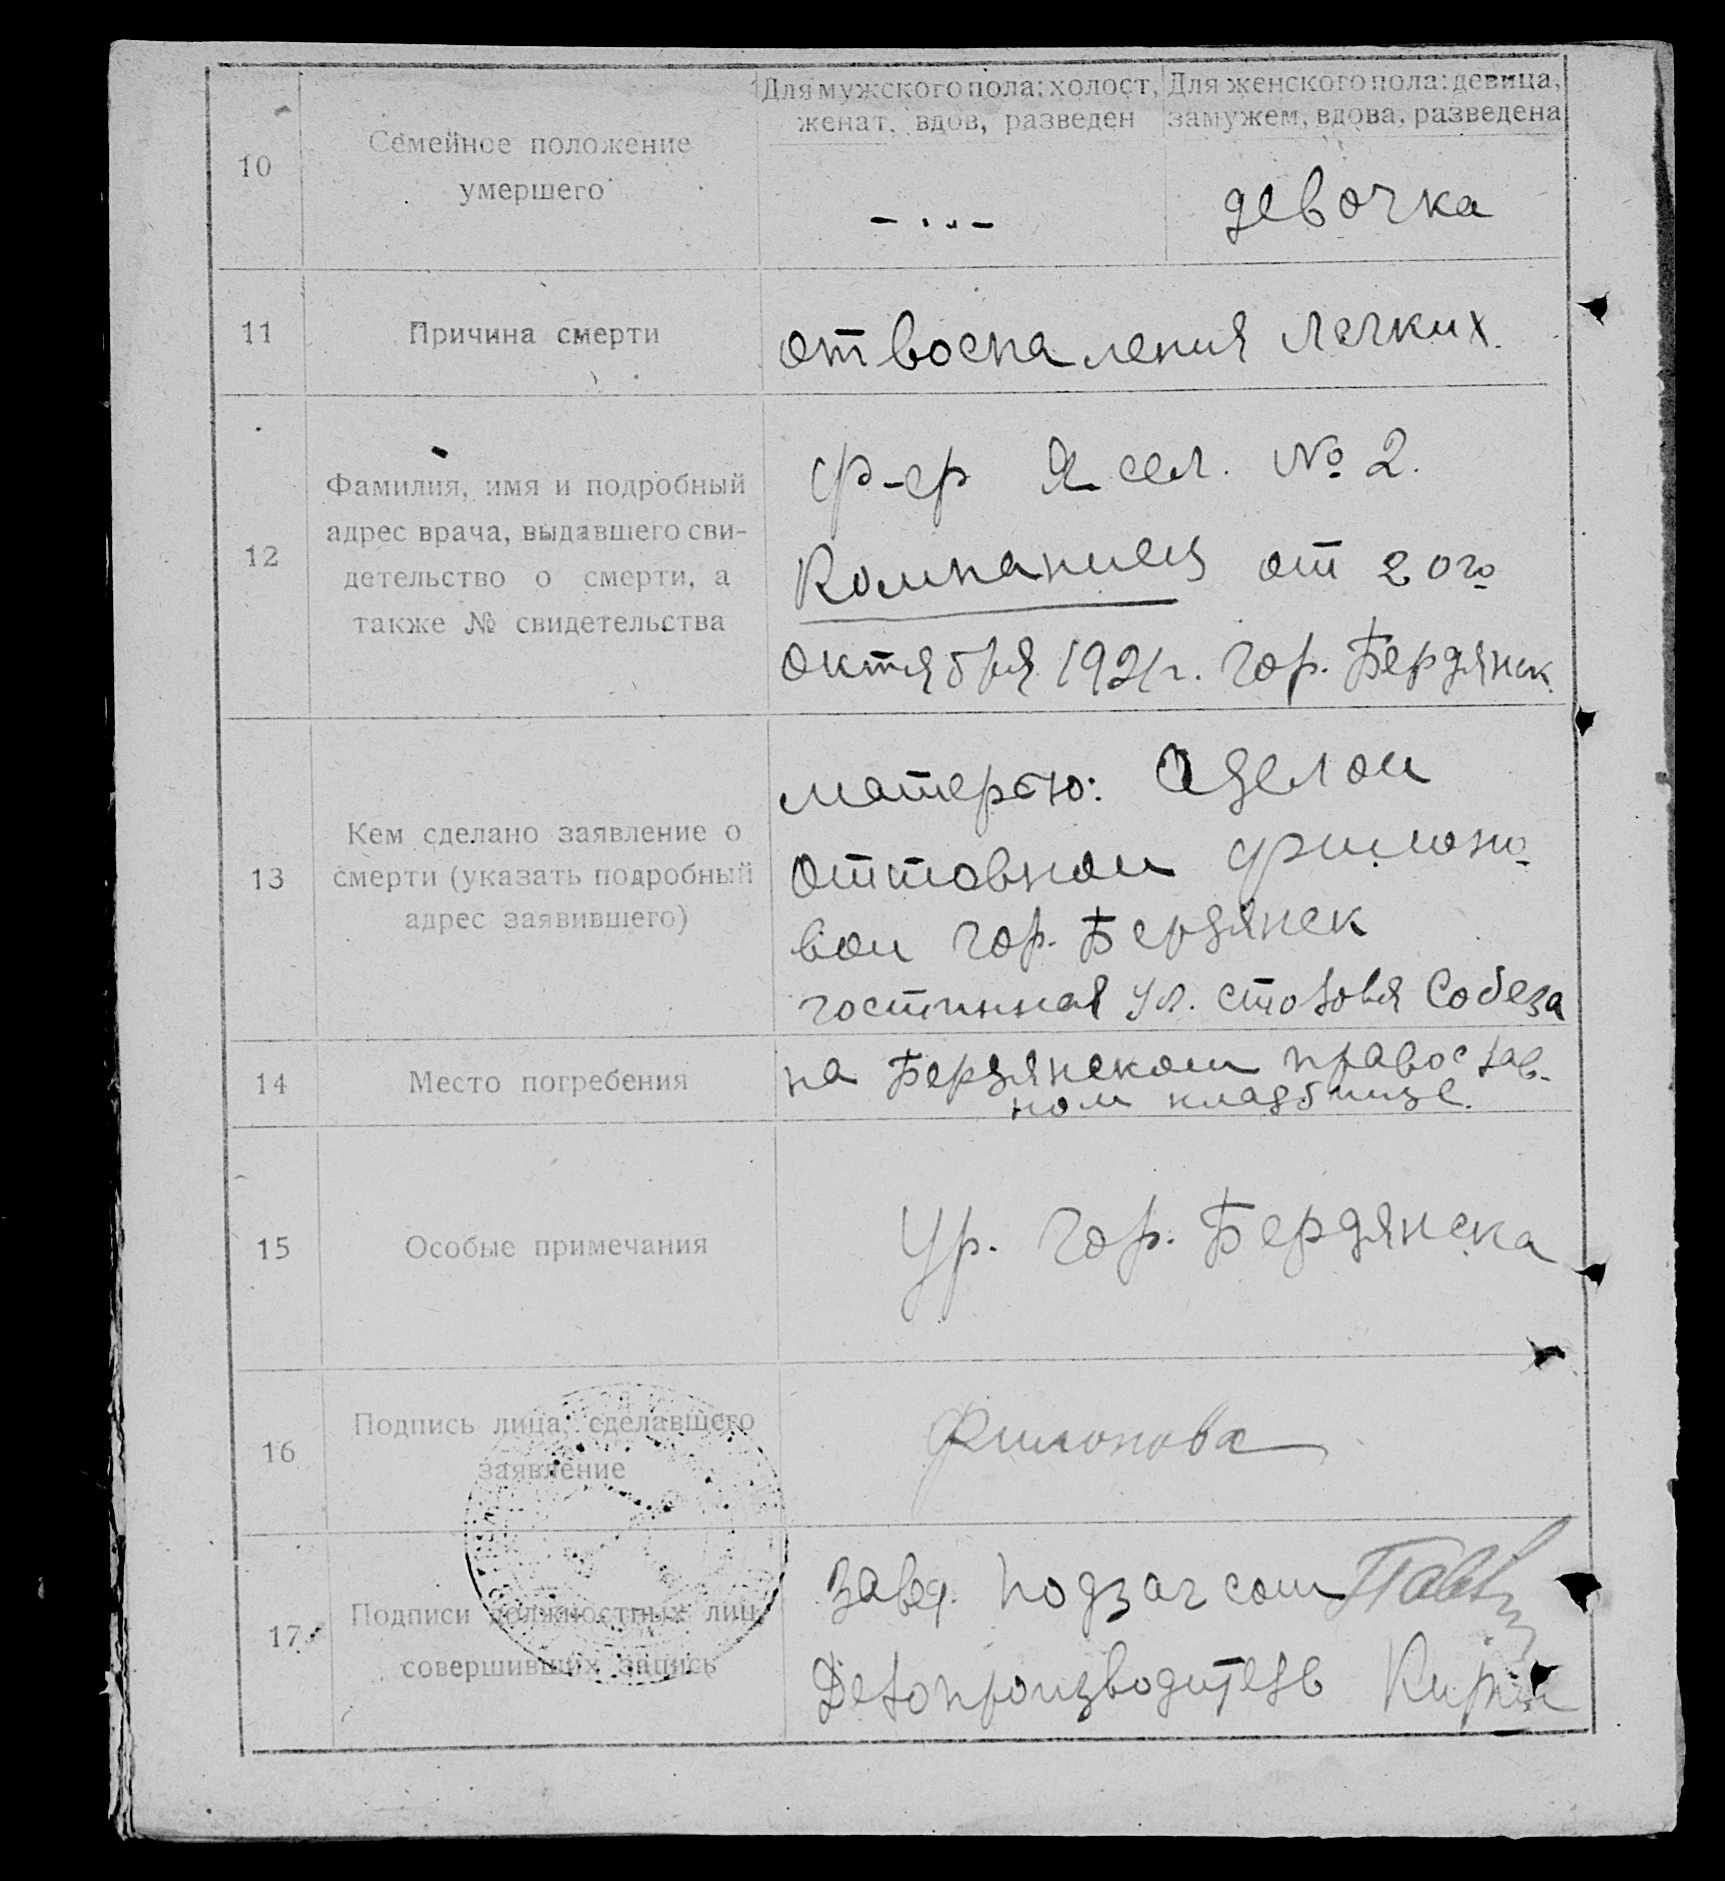 Для мужского пола: холост, женат, вдов, разведен
Для женского пола: девица, замужем, вдова, разведена
10
Семейное положение
умершего
девочка
11
Причина смерти
от воспаления легких.
12
Фамилия, имя и подробный
адрес врача, выдавшего сви-
детельство о смерти, а
также № свидетельства
ф-ер Ясел. № 2.
Компаниец от 20го
октября 1921г. гор. Бердянск.
13
Кем сделано заявление о
смерти (указать подробный
адрес заявившего)
матерью: Аделой
Оттовной Филоно-
вой гор. Бердянск
гостинная ул. столовя Собеза
14
Место погребения
на Бердянском православ-
ном кладбище.
15
Особые примечания
Ур. гор. Бердянска
16
Подпись лица, сделавшего
заявление
Филонова
17
Подписи должностных лиц,
совершивших запись
Завед. подзагсом
Делопроизводитель